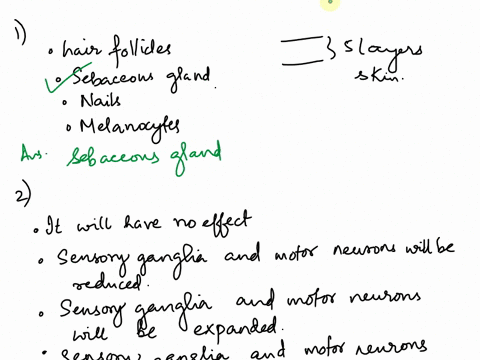 1)
• hair follicles
} 5 layers
skin.
• Sebaceous gland.
• Nails
• Melanocytes
Ans. Sebaceous gland
2)
• It will have no effect
• Sensory ganglia and motor neurons will be
reduced.
• Sensory ganglia and motor neurons
will be expanded.
• Sensory ganglia and motor neurons